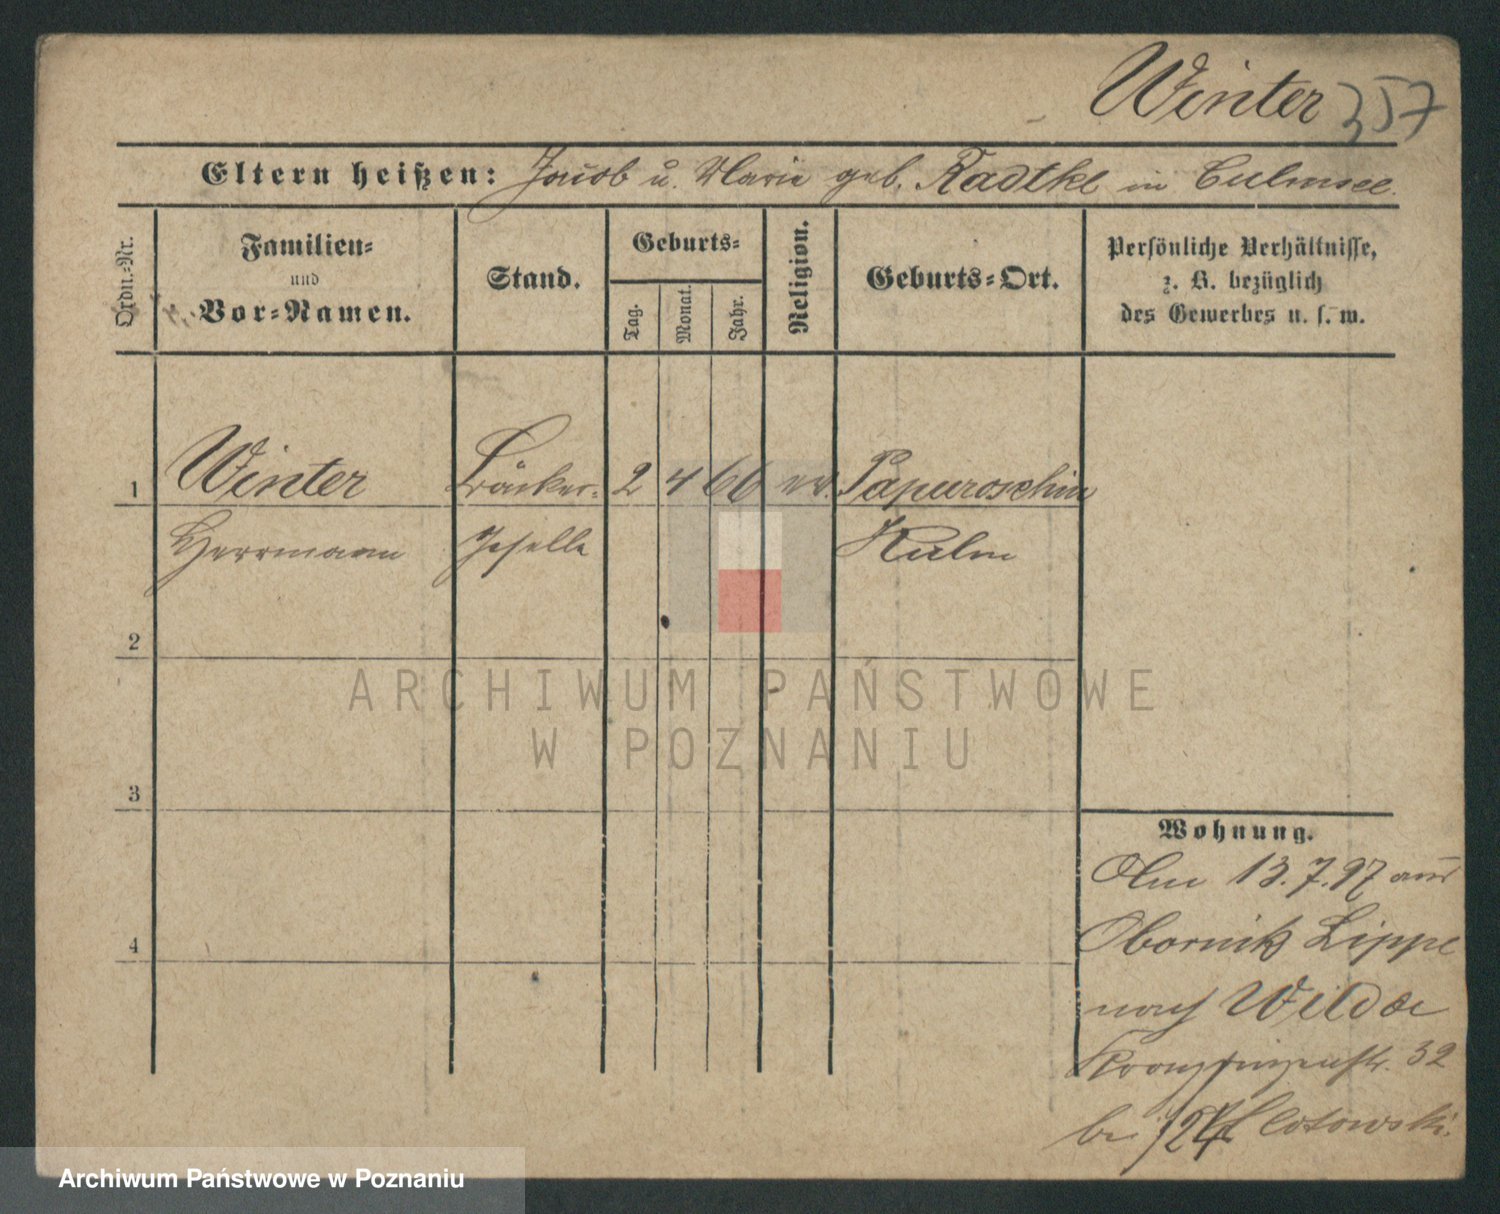 Winter 357
Eltern heißen: Jacob u. Marie geb. Radtke in Culmsee.
Ordn.-Nr.
Familien- und Vor-Namen.
Stand.
Geburts-
Tag.
Monat.
Jahr.
Religion.
Geburts-Ort.
Persönliche Verhältnisse,
z. B. bezüglich
des Gewerbes u. s. w.
1 Winter Bäcker- 2 4 66 ev. Papuroschin
Herrmann Geselle Kulm
2
3
4
Wohnung.
13.7.97 aus
Obornik Lippe
nach Wilda
Kronprinzenstr. 32
bei Zlotowski.
124
ARCHIWUM PAŃSTWOWE
W POZNANIU
Archiwum Państwowe w Poznaniu